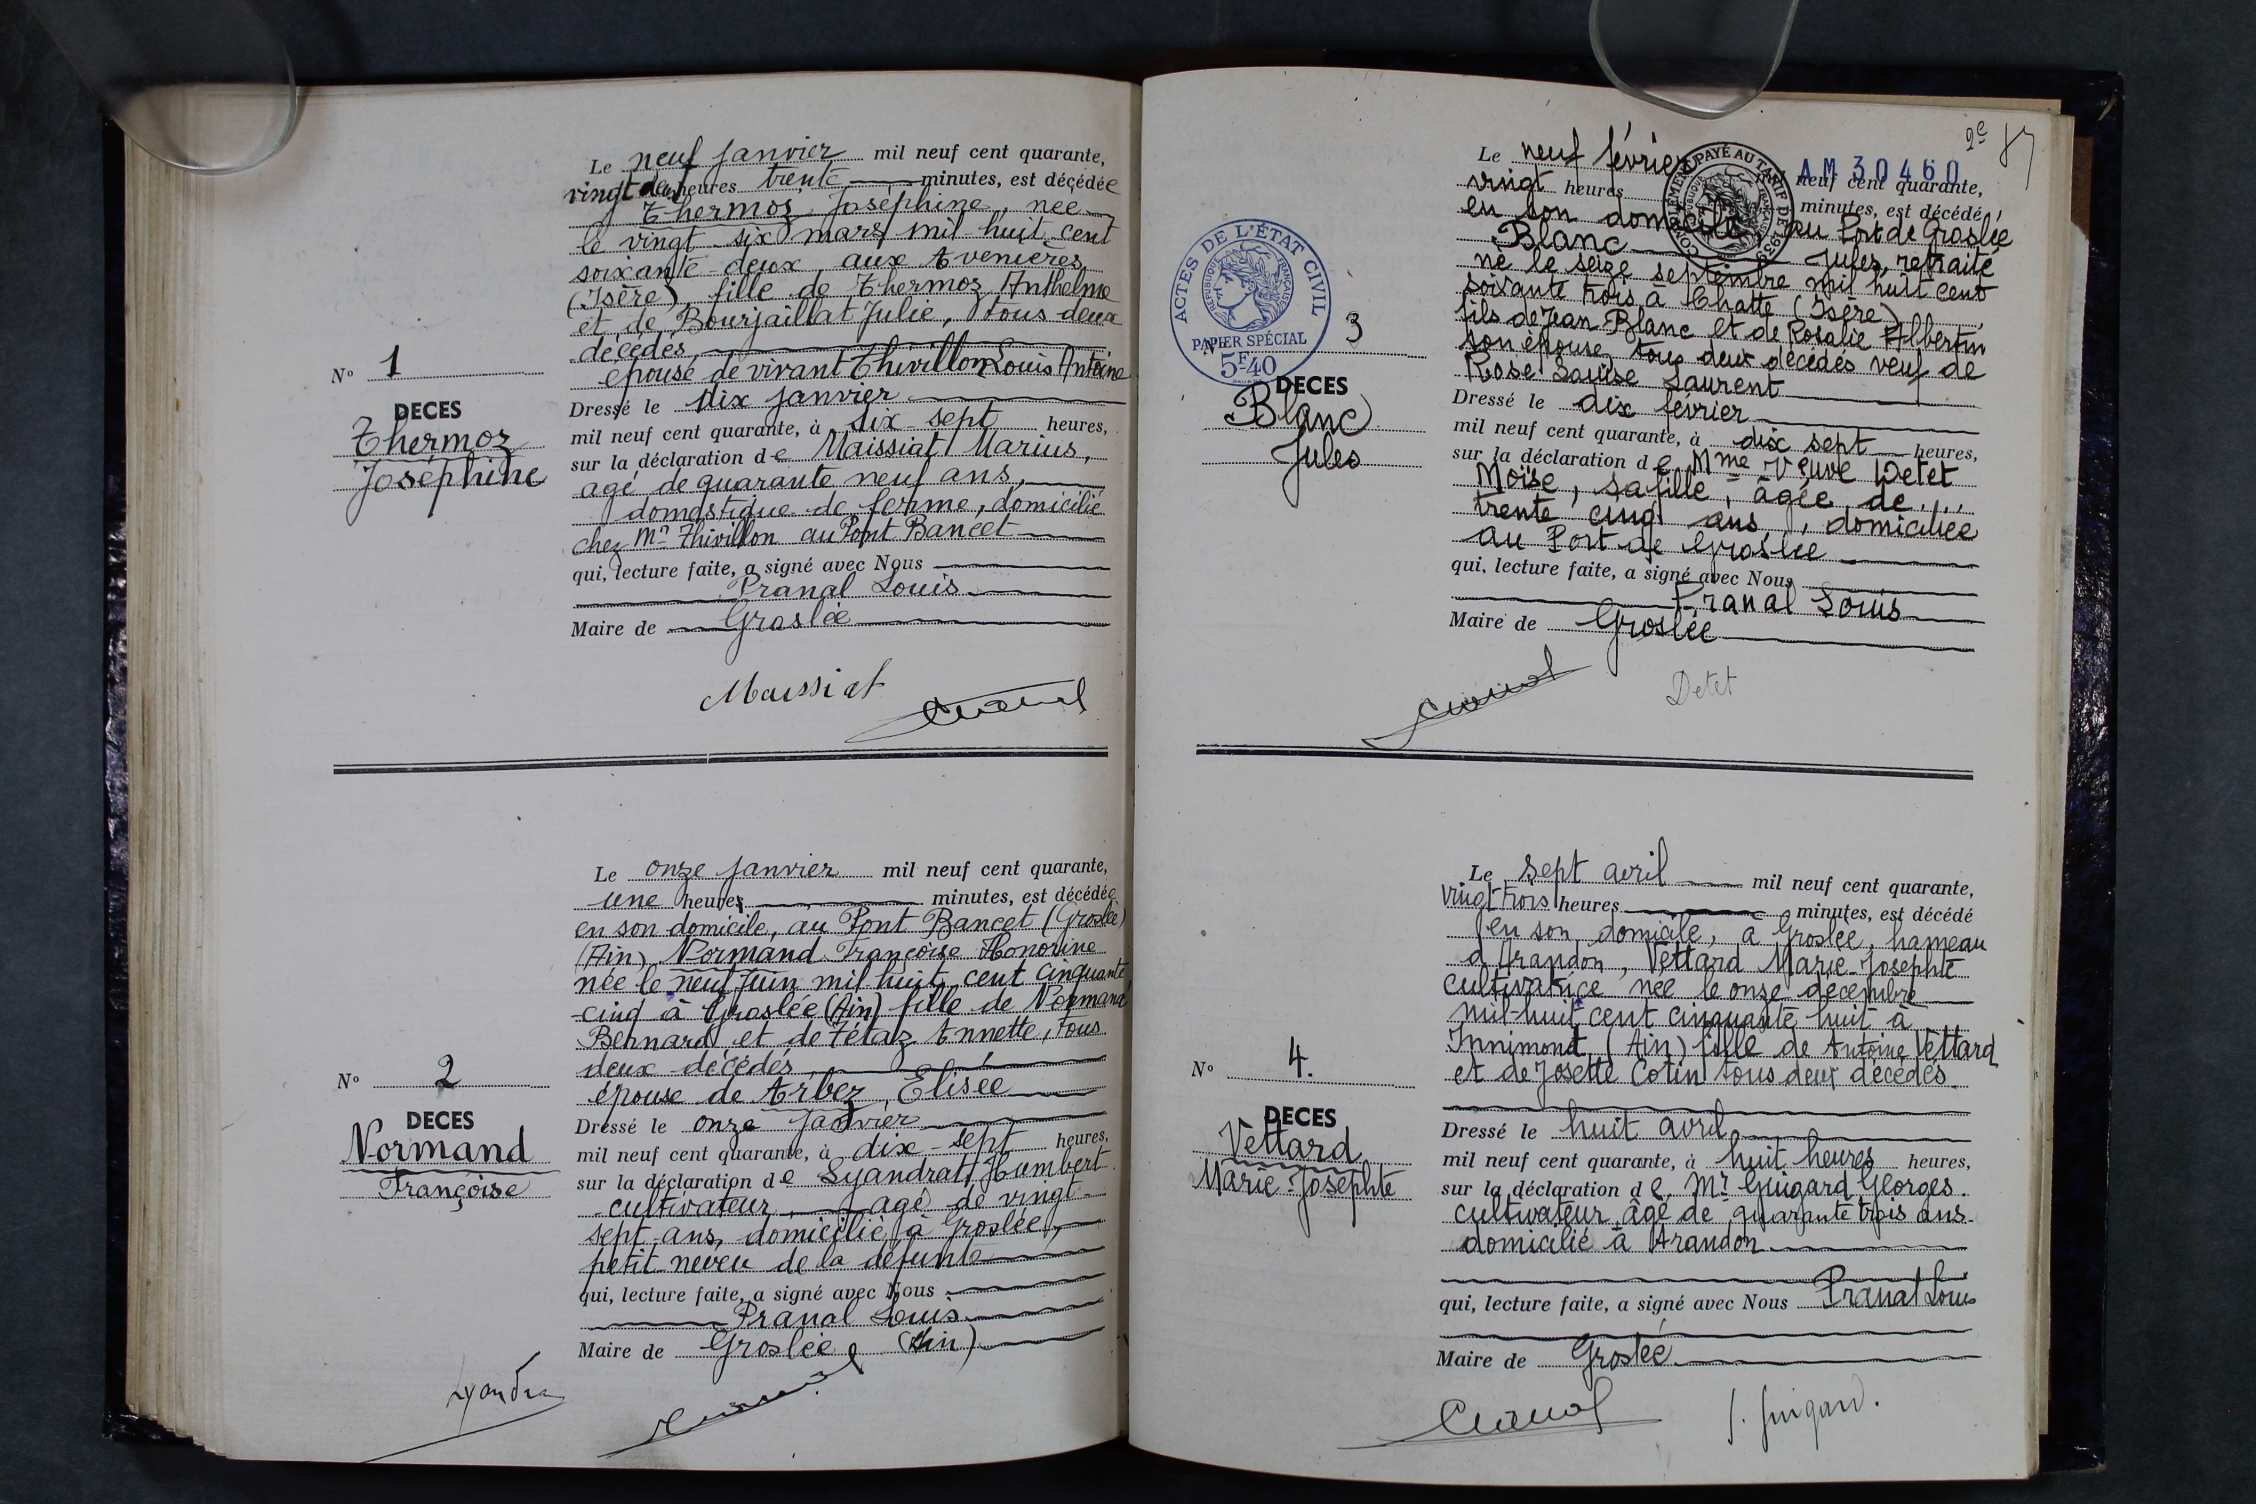 Le neuf janvier mil neuf cent quarante,
vingt deux heures trente minutes, est décédée
Thermoz Joséphine, née
le vingt-six mars mil huit cent
soixante-deux aux Avenières
(Isère), fille de Thermoz Anthelme
et de Bourjaillat Julie, tous deux
décédés,
épouse de vivant Thivillon Louis Antoine
Dressé le dix janvier
mil neuf cent quarante, à dix-sept heures,
sur la déclaration de Maissiat Marius,
agé de quarante neuf ans,
domestique de ferme, domicilié
chez Mr Thivillon au Pont Bancet
qui, lecture faite, a signé avec Nous
Pranal Louis
Maire de Groslée
N° 1
DECES
Thermoz
Joséphine
Maissiat
Le onze janvier mil neuf cent quarante,
une heures minutes, est décédée
en son domicile, au Pont Bancet (Groslée)
(Ain) Normand Françoise Honorine
née le neuf Juin mil huit cent cinquante
cinq à Groslée (Ain) fille de Normand
Bernard et de Tétaz Annette, tous
deux décédés
épouse de Arbez, Elisée
Dressé le onze janvier
mil neuf cent quarante, à dix-sept heures,
sur la déclaration de Lyandrat Humbert
cultivateur, agé de vingt-
sept ans, domicilié à Groslée,
petit neveu de la défunte
qui, lecture faite, a signé avec Nous
Pranal Louis
Maire de Groslée (Ain)
N° 2
DECES
Normand
Françoise
2e
87
AM 30460
Le neuf février neuf cent quarante,
vingt heures minutes, est décédé,
en son domicile, au Port de Groslée
Blanc Jules, retraité
né le seize septembre mil huit cent
soixante trois à Chatte (Isère)
fils de Jean Blanc et de Rosalie Albertin
son épouse, tous deux décédés veuf de
Rose Louise Laurent
Dressé le dix février
mil neuf cent quarante, à dix sept heures,
sur la déclaration de Mme Veuve Detet
Moïse, sa fille, âgée de...
trente cinq ans, domiciliée
au Port de Groslée
qui, lecture faite, a signé avec Nous
Pranal Louis
Maire de Groslée
ACTES DE L'ÉTAT CIVIL
RÉPUBLIQUE FRANÇAISE
PAPIER SPÉCIAL
5F40
N° 3
DECES
Blanc
Jules
Detet
Le sept avril mil neuf cent quarante,
vingt-trois heures minutes, est décédé
en son domicile, à Groslée, hameau
d'Arandon, Vettard Marie-Josephte
cultivatrice née le onze décembre
mil-huit cent cinquante huit à
Innimont (Ain) fille de Antoine Vettard
et de Josette Cotin tous deux décédés.
Dressé le huit avril
mil neuf cent quarante, à huit heures heures,
sur la déclaration de Mr Guigard Georges.
cultivateur, âgé de quarante trois ans
domicilié à Arandon
qui, lecture faite, a signé avec Nous Pranal Louis
Maire de Groslée
N° 4.
DECES
Vettard
Marie-Josephte
G. Guigard.